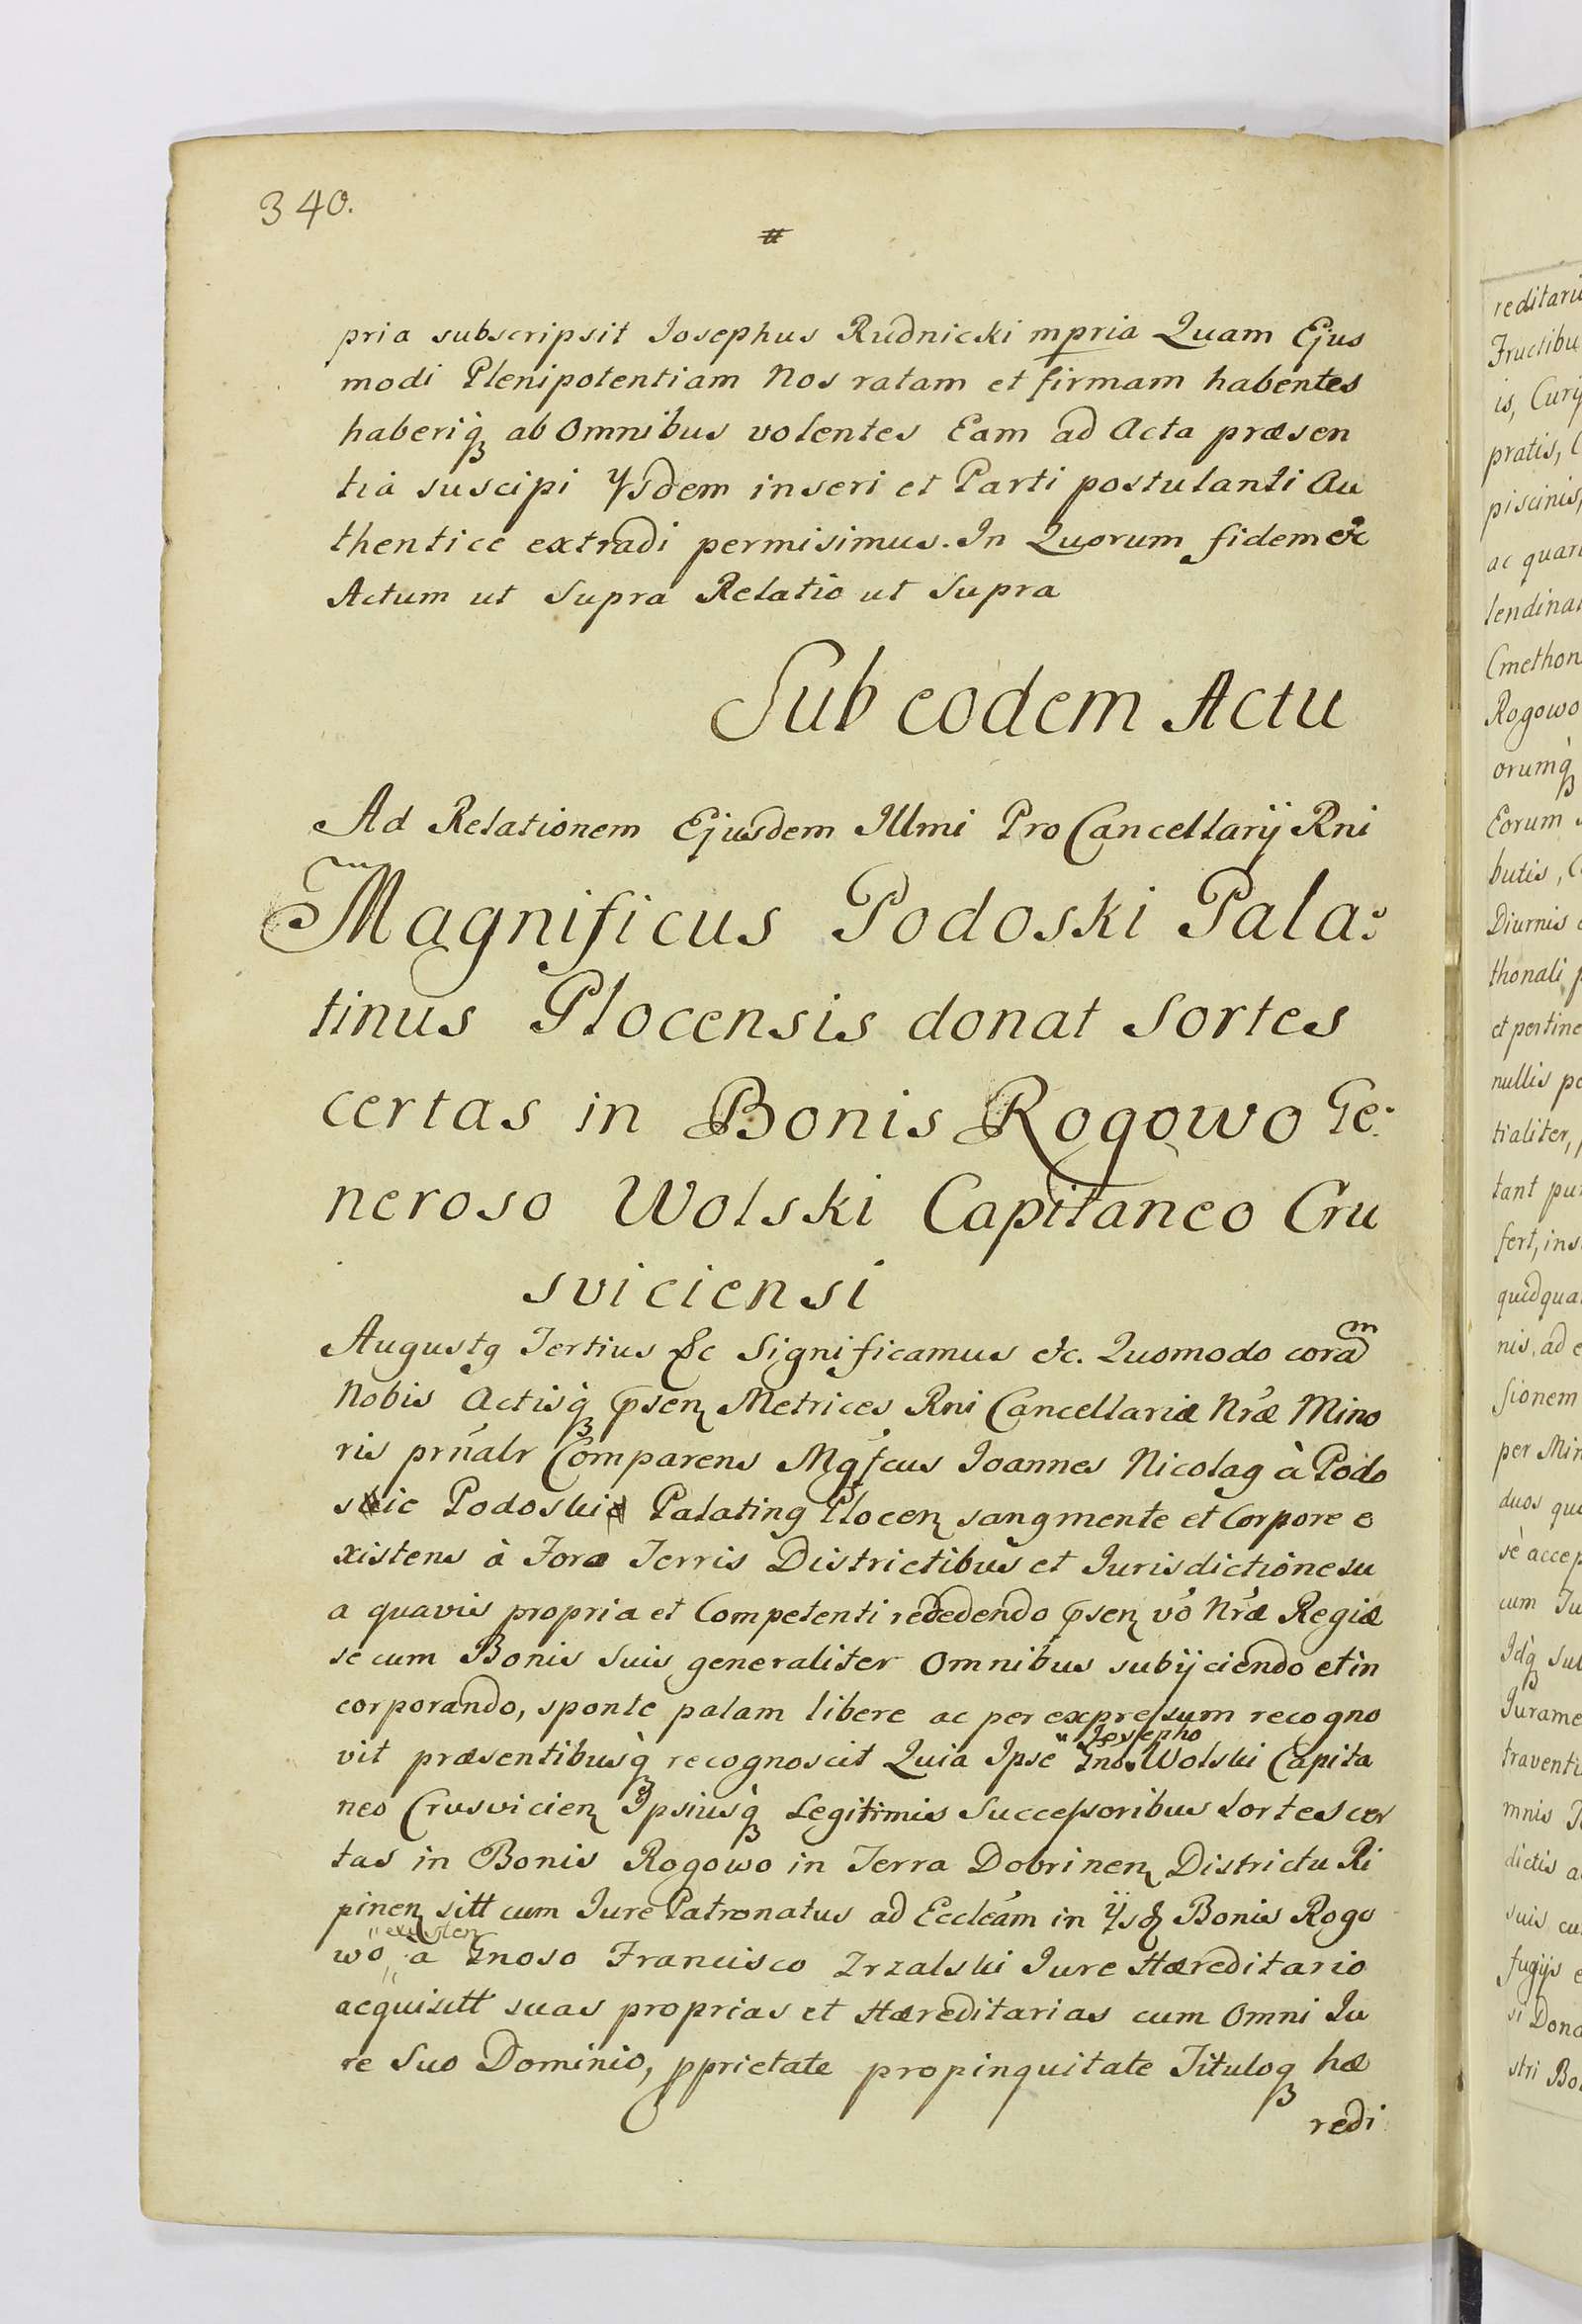 340.
#
pria subscripsit Josephus Rudnicki mpria Quam Ejus
modi Plenipotentiam Nos ratam et firmam habentes
haberiq̀ꝫ ab Omnibus volentes Eam ad Acta præsen
tia suscipi Ysdem inseri et Parti postulanti Au
thentice extradi permisimus. In Quorum fidem etc
Actum ut Supra Relatio ut Supra
Sub eodem Actu
Ad Relationem Ejusdem Illmi Pro Cancellarij Rni
Magnificus Podoski Pala:
tinus Plocensis donat Sortes
certas in Bonis Rogowo Ge:
neroso Wolski Capitaneo Cru
sviciensi
Augustꝯ Tertius &c Significamus etc. Quomodo coram
Nobis Actisq̀ꝫ p̄senꝫ Metrices Rni Cancellariæ Nr̃æ Mino
ris prñalr Comparens Mgfcus Joannes Nicolaꝯ à Podo
skie Podoski Palatinꝯ Plocenꝫ sanꝯ mente et Corpore e
xistens à Foro Terris Districtibus et Jurisdictione su
a quavis propria et Competenti recedendo p̄senꝫ vo᷃ Nr̃æ Regiæ
se cum Bonis Suis generaliter Omnibus subijciendo et in
corporando, sponte palam libere ac per expressum recogno
vit præsentibusq̀ꝫ recognoscit Quia Ipse Gno " Josepho Wolski Capita
neo Crusvicienꝫ Ipsiusq̀ꝫ Legitimis Successoribus Sortes cer
tas in Bonis Rogowo in Terra Dobrinenꝫ Districtu Ri
pinenꝫ sitt cum Jure Patronatus ad Eccleãm in ijsdꝫ Bonis Rogo
wo " existenꝫ " a Gnoso Francisco Zrzalski Jure Hæreditario
acquisitt suas proprias et Hæreditarias cum Omni Ju
re Suo Dominio, ꝓprietate propinquitate Tituloqꝫ hæ
redi
reditari
Fructibu
is, Curij
pratis,
piscinis,
ac quar
lendina
Cmethon
Rogowo
orumq̀ꝫ
Eorum
butis,
Diurnis
thonali
et pertine
nullis
tialiter,
tant pu
fert, ins
quidqua
nis, ad
sionem
per Min
duos que
sè accep
cum Ju
Idq̀ꝫ Sub
Jurame
traventi
mnis
dictis a
suis cu
fugijs
si Dona
stri Bo